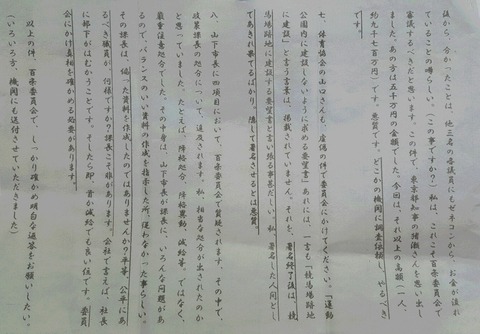 後から、分かったことは、他三名の各議員にもゼネコンから、お金が流れ
ていることの噂らしい。(この事ですか?) 私は、これこそ百条委員会で
審議するべきだと思います。この件で、東京都知事の猪瀬さんを思い出し
ました。あの方は五千万円の金額でした。今回は、それ以上の高額(一人、
約九千七百万円)です。悪質です。どこかの機関に調査依頼し、やるべき
です。
七、体育協会の山口さんも、虚偽の件で委員会にかけてください。「運動
公園内に建設しないように求める要望書」あれには、一言も「競馬場路地
に建設」と言う言葉は、掲載されていません。それを、署名終了後は、競
馬場路地に建設する要望書と言い張る事甚だしい。私、署名した人間とし
てあきれ果てるばかり。隠して署名させるとは悪質
八、山下市長に四項目において、百条委員会で質疑されます。その中で、
政策課長の処分について、追及されます。私、相当な処分が出されたのか
と思っていました。たとえば、降格処分、降格異動、減給等。ではなく、
厳重注意処分でした。その中身は、山下市長が課長に、いろんな問題があ
るので、バランスのいい資料の作成を指示した所、従わなかった事らしい。
その課長は、偏った資料を作成したのではありませんか?平等、公平にあ
るべき職員が、何様ですか?課長こそ非があります。会社で言えば、社長
に部下がはむかうことです。そしたら、即、首か減給でも良い位です。委員
会にかけ真相を確かめる必要があります。
以上の件、百条委員会で、しっかり確かめ明白な返答をお願いしたい。
(いろいろな、機関にも送付させていただきました)